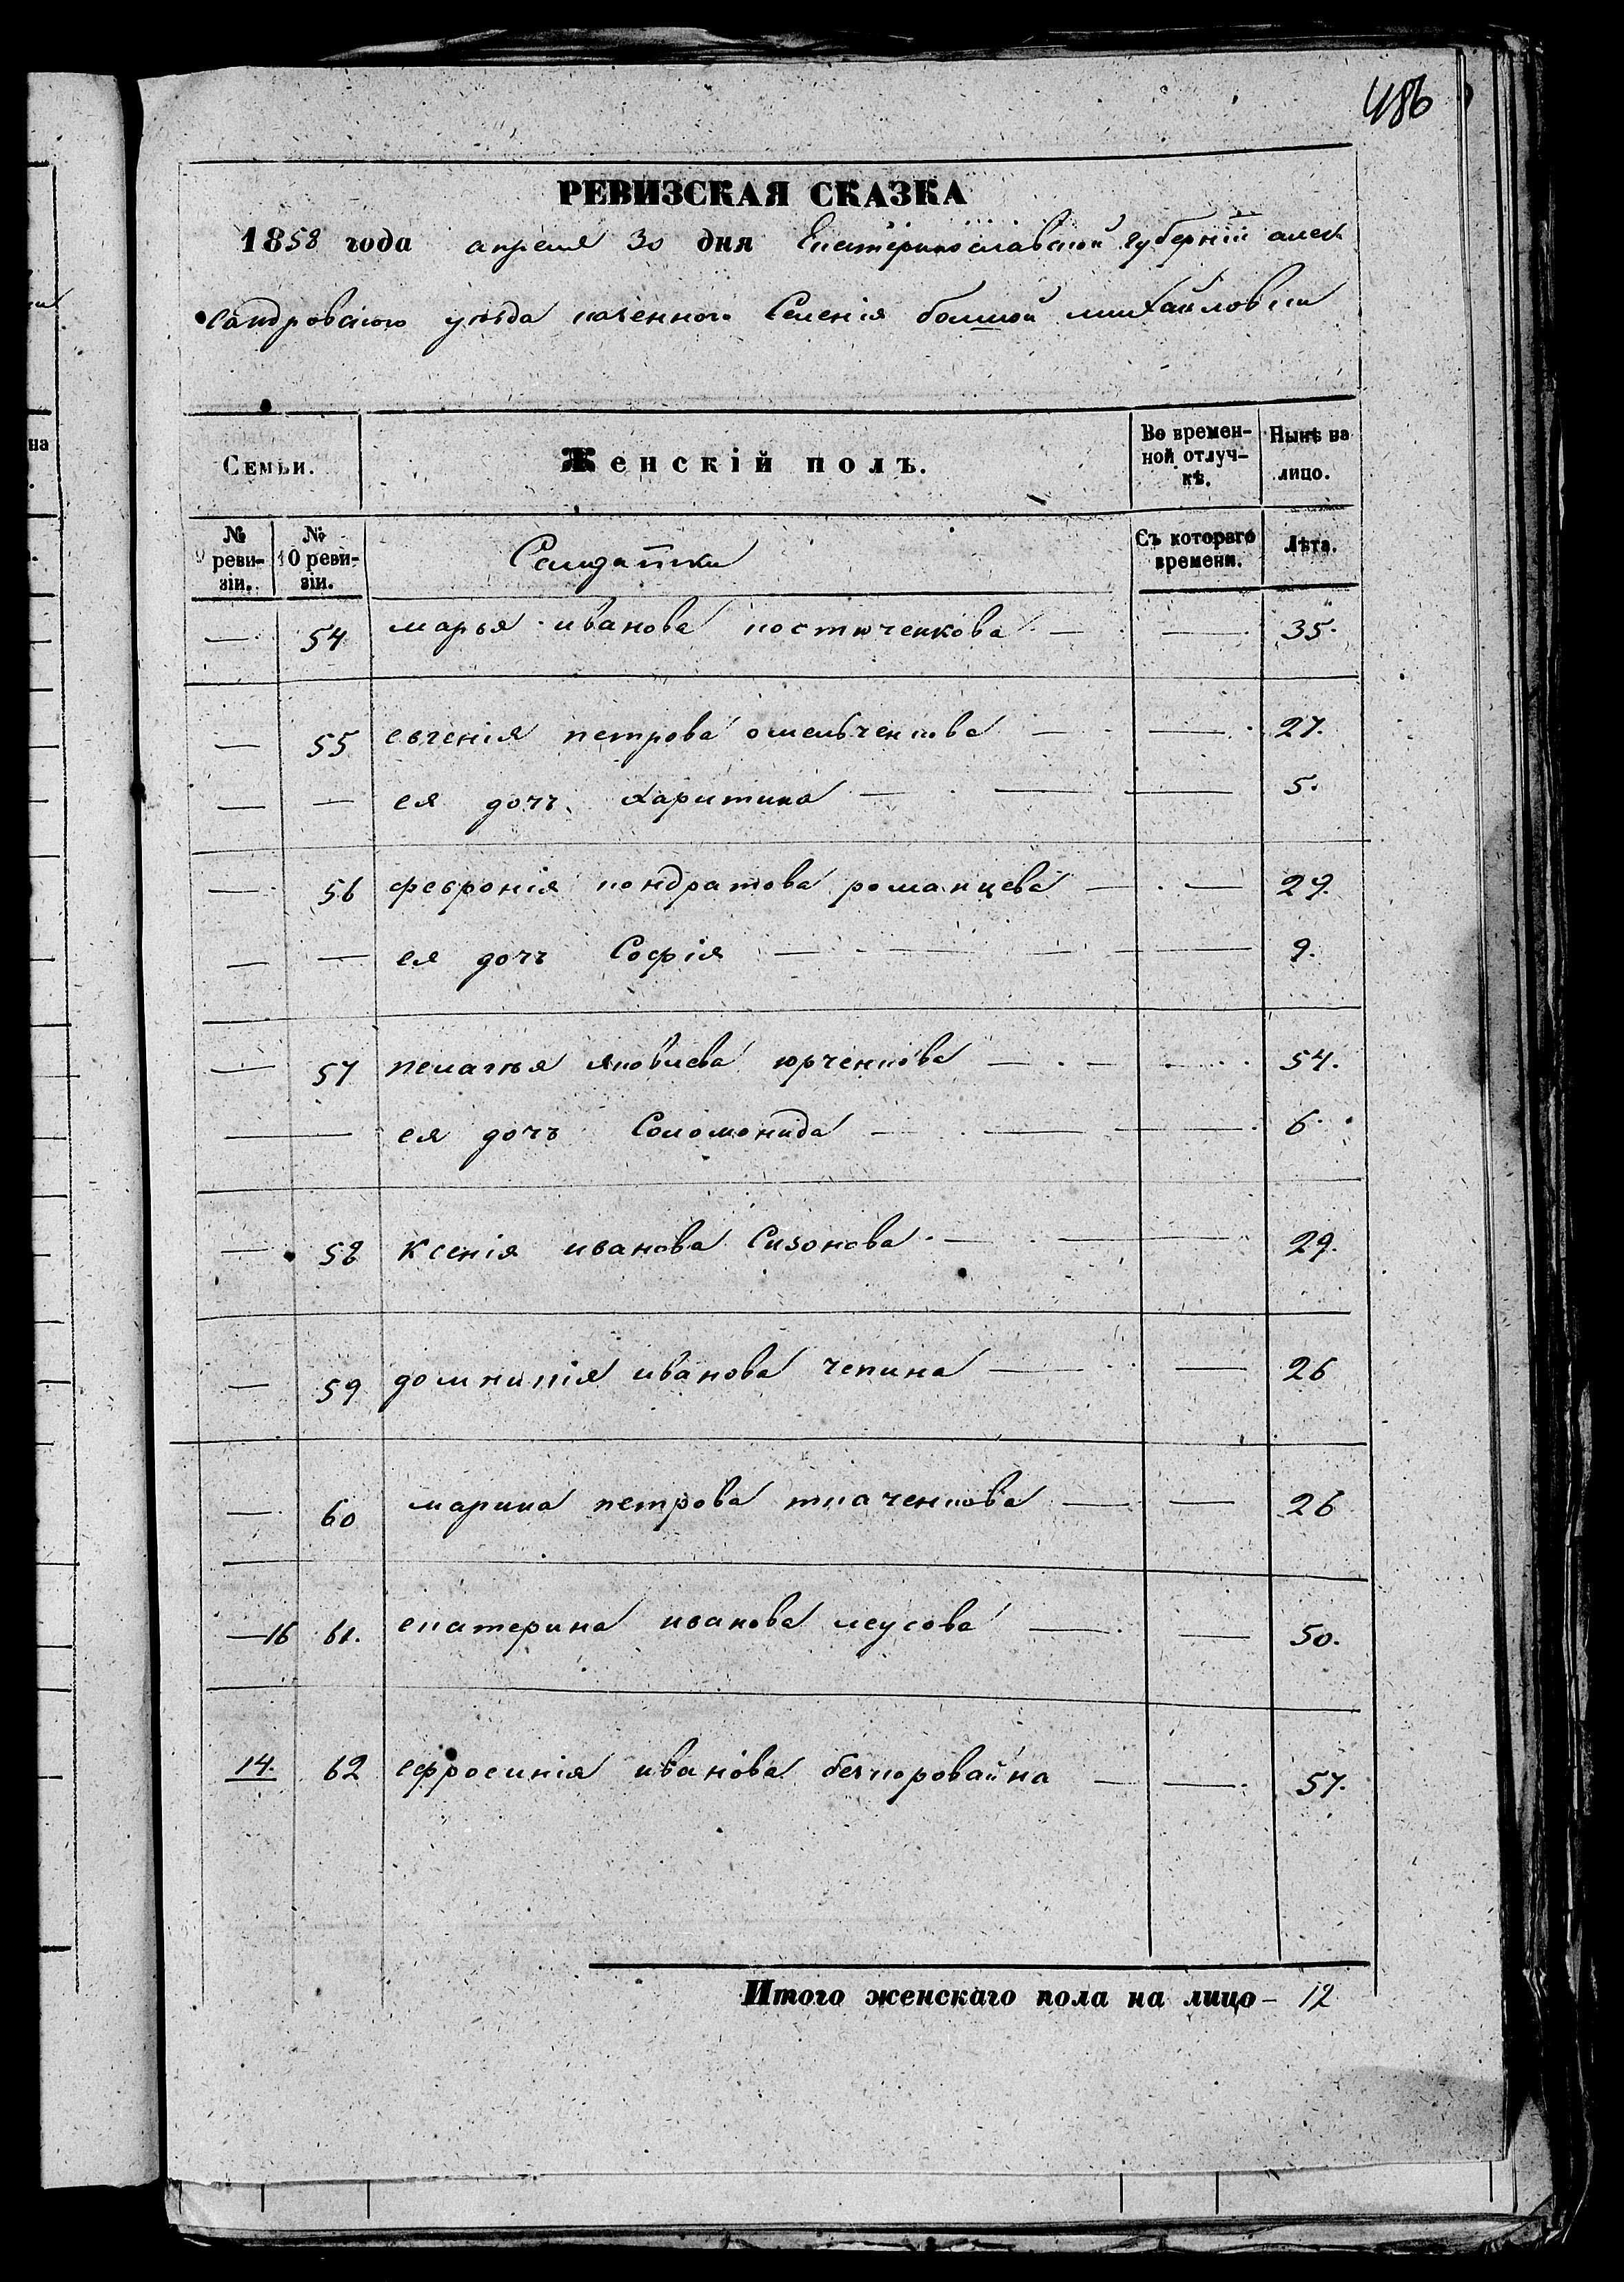 486
РЕВИЗСКАЯ СКАЗКА
1858 года апреля 30 дня Екатеринославской губернiи алек
сандровского уезда казенного Селенiя большой михайловки
Семьи. Женскiй полъ. Во времен- Нынѣ на
ной отлуч- лицо.
кѣ.
№ № Солдатки Съ котораго Лѣта.
9 реви- 10 реви- времени.
зiи. зiи.
— 54 марья иванова костюченкова — — 35.
— 55 евгенiя петрова омельченкова — — 27.
— — ея дочъ харитина — — — 5.
— 56 феврония кондратова романцева — — 29.
— — ея дочъ Софiя — — — — 9.
— 57 пелагея яковлева юрченкова — — 54.
— ея дочъ Соломонида — — — 6.
— 58 ксенiя иванова Сизонова — — — 29.
— 59 домникiя иванова чепина — — 26
— 60 марина петрова ткаченкова — — 26
—16 61. екатерина иванова леусова — — 50.
14. 62 ефросинiя иванова безкоровайна — — 57.
Итого женскаго пола на лицо – 12